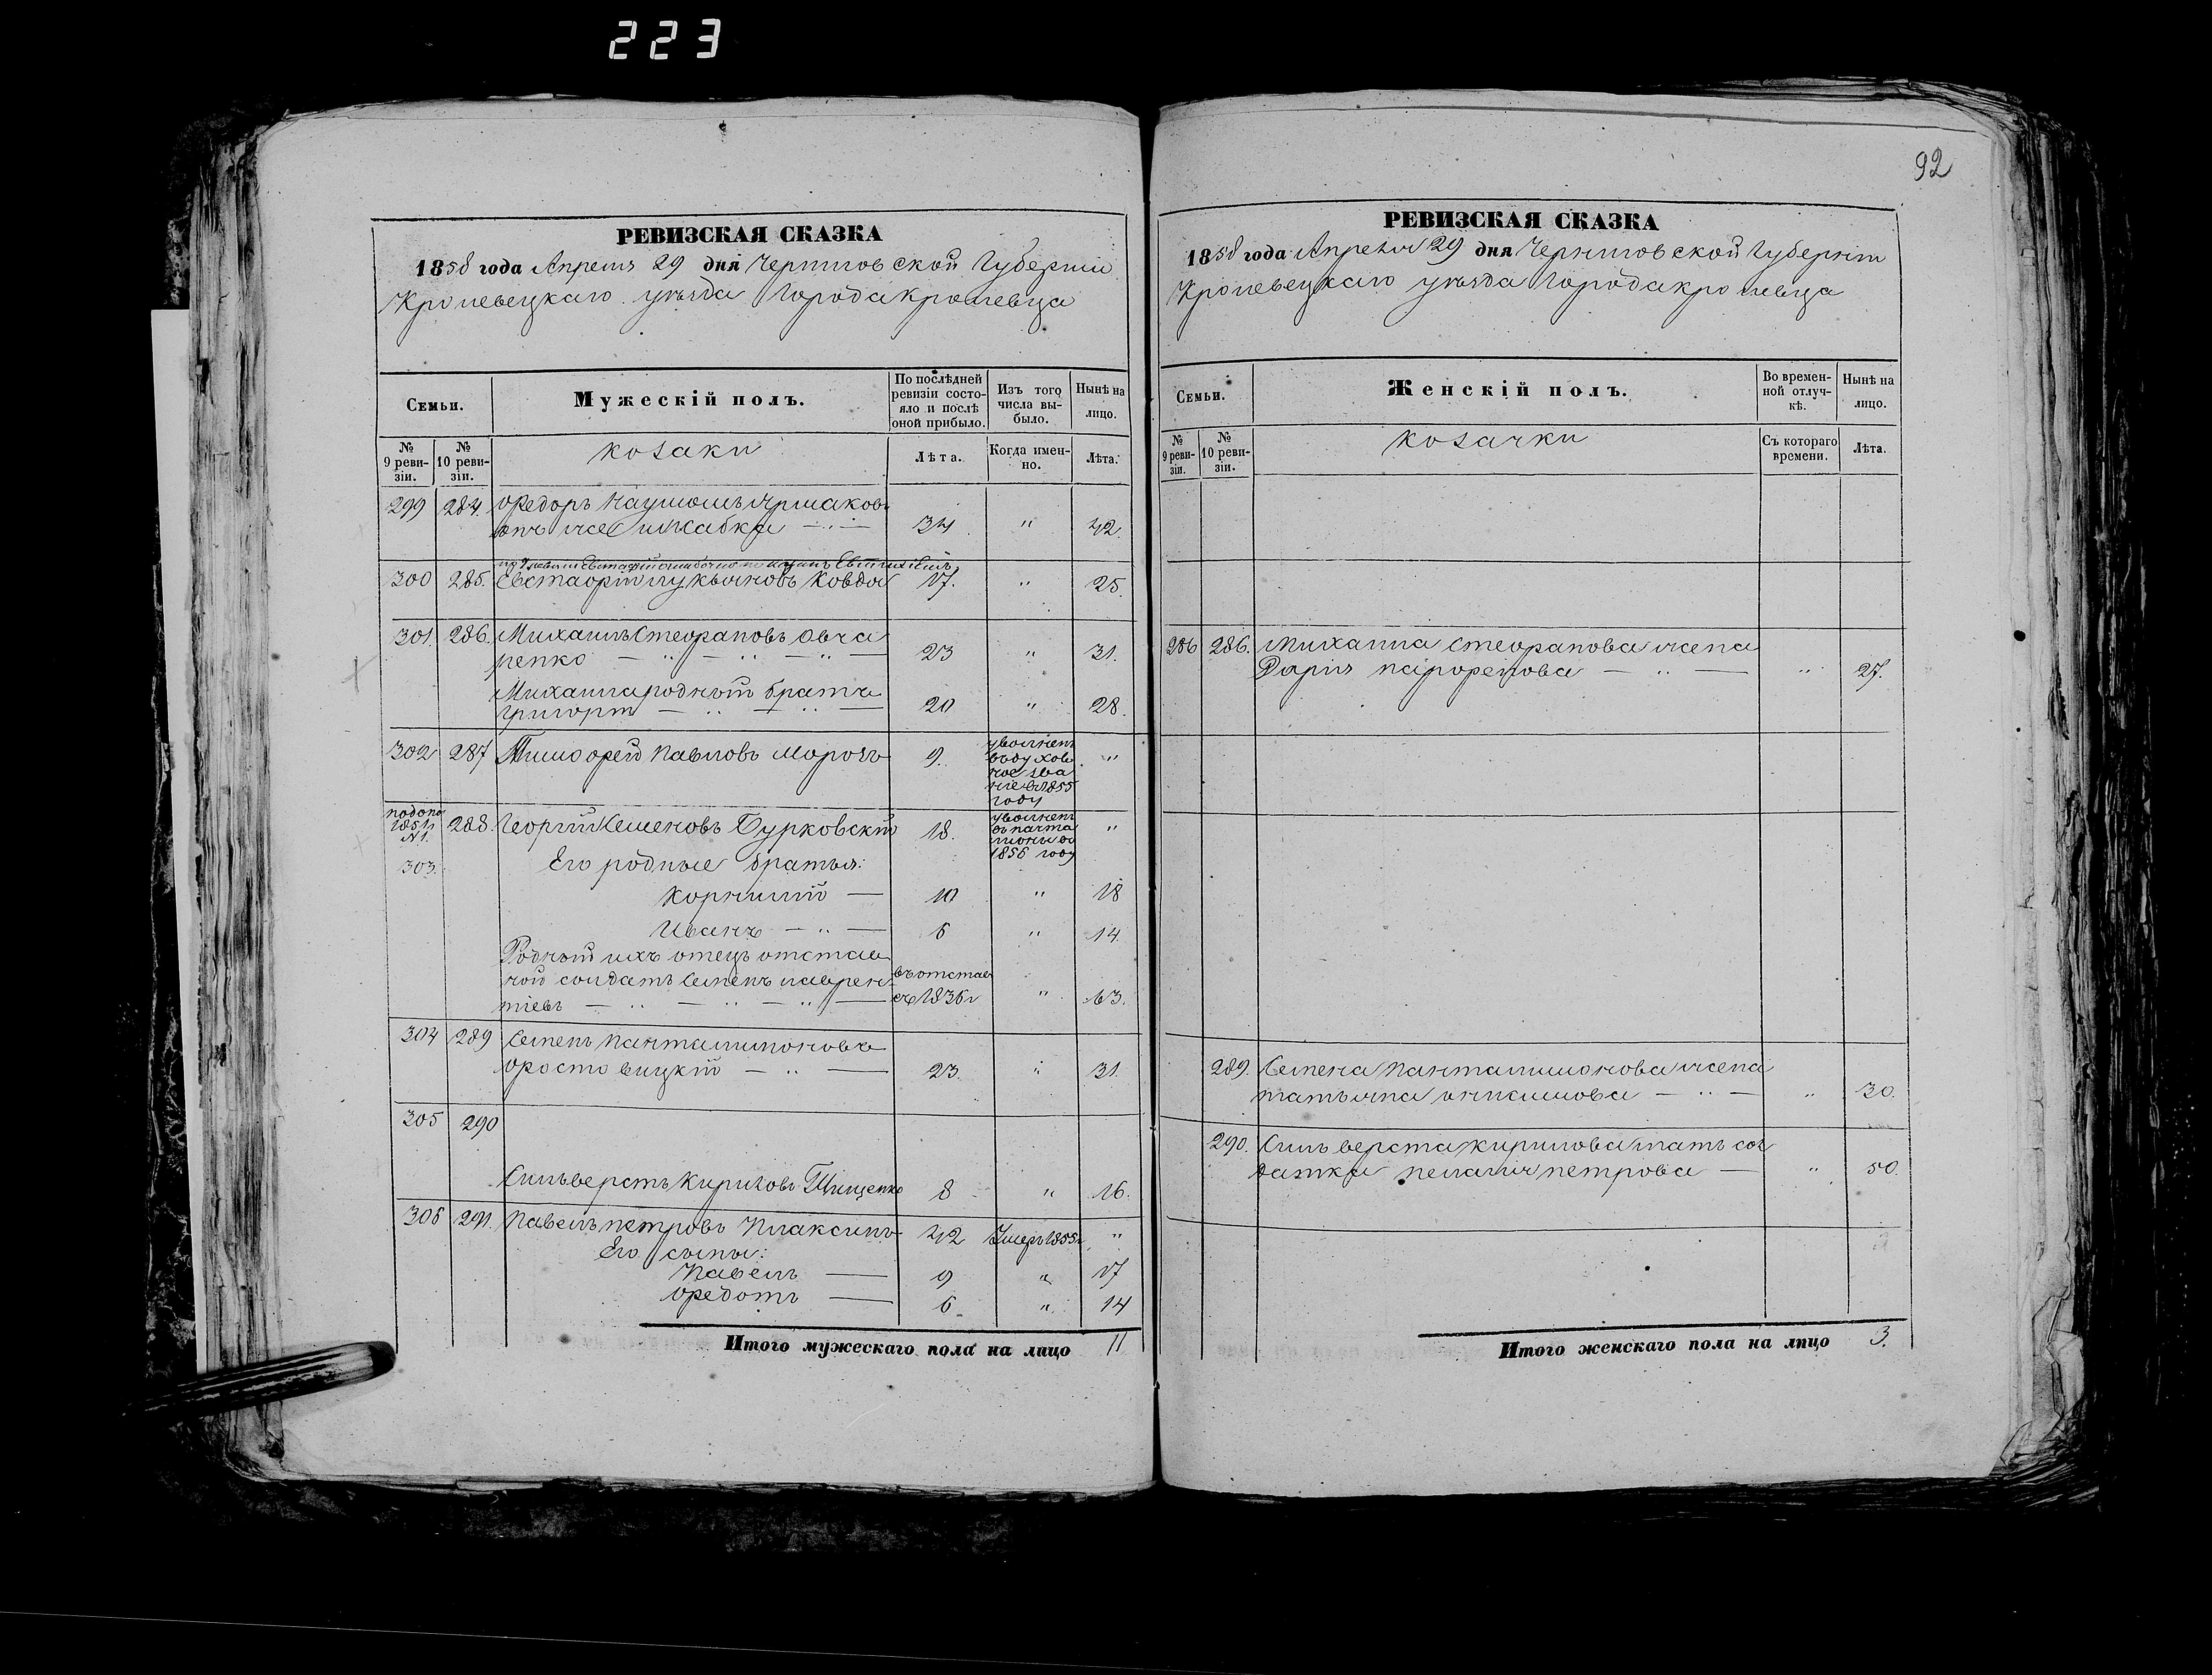 223
РЕВИЗСКАЯ СКАЗКА
1858 года Апреля 29 дня Черниговской Губернии
Кролевецкаго уезда Города Кролевца
Семьи.
Мужескій полъ.
По послѣдней ревизіи состояло и послѣ оной прибыло.
Изъ того числа выбыло.
Нынѣ на лицо.
№ 9 ревизіи.
№ 10 ревизіи.
козаки
Лѣта.
Когда именно.
Лѣта.
299 284. Федоръ Наумовъ
34 " 42.
300 285. Евстафій Лукьяновъ Ковдя 17. " 25.
301. 286. Михаилъ Стефановъ Овча
ренко 23 " 31.
Михаила родный братъ
Григорій 20 " 28.
302 287 Тимофей Павловъ Морозъ 9. уволненъ
въ духов
ное зва
ніе в 1855
году "
1851
№ 1.
303. 288. Георгій Семеновъ Бурковскій 18. уволненъ
1856 году "
Его родные братья:
Корнилій 10 " 18
Иванъ 6 " 14.
Родный ихъ отецъ отстав
ной солдатъ Семенъ Лаврен
тіевъ въ отстав
съ 1836 г " 63.
304 289 Семенъ Панталимоновъ
Фростовицкій 23. " 31.
305 290
Сильверстъ Кириловъ Тищенко 8 " 16.
306 291. Павелъ Петровъ Плаксинъ 42 Умеръ 1855 г. "
Его сыны:
Павелъ 9 " 17
Федотъ 6 " 14
Итого мужескаго пола на лицо 11
92
РЕВИЗСКАЯ СКАЗКА
1858 года Апреля 29 дня Черниговской Губерніи
Кролевецкаго уезда Города Кролевца
Семьи.
Женскій полъ.
Во временной отлучкѣ.
Нынѣ на лицо.
№ 9 ревизіи.
№ 10 ревизіи.
козачки
Съ котораго времени.
Лѣта.
286 286. Михаила Стефанова жена
Дарія " 27.
289. Семена Панталимонова жена
Татьяна " 30.
290. Сильверста Кирилова мать сол
датка Пелагия Петрова " 50.
Итого женскаго пола на лицо 3.